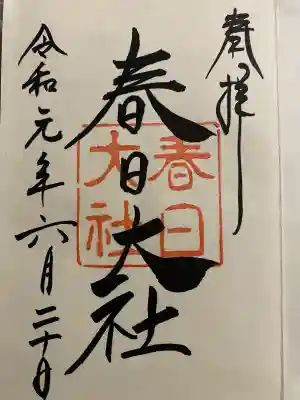 奉拝
春日大社
春日大社
令和元年六月二十日